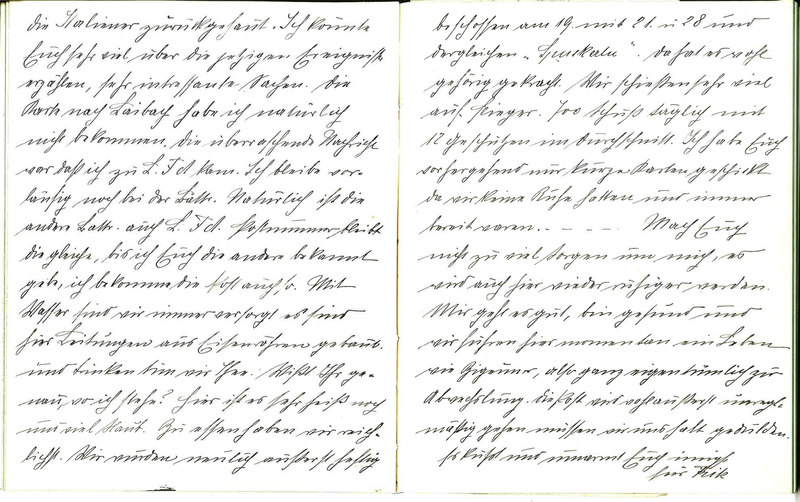 die Italiener zurückgehaut. Ich könnte
Euch sehr viel über die jetzigen Ereignisse
erzählen, sehr intressante Sachen. Die
Karte nach Laibach habe ich natürlich
nicht bekommen. Die überraschende Nachricht
war daß ich zu L. Fd kam. Ich bleibe vor-
läufig noch bei der Battr. Natürlich ist die
andere Battr. auch L. Fd. Postnummer bleibt
die gleiche, bis ich Euch die andere bekannt
gebe, ich bekomme die Post auch so. Mit
Wasser sind wir immer versorgt es sind
hier Leitungen aus Eisenröhren gebaut.
und trinken tun wir Thee. Wißt Ihr ge-
nau, wo ich stehe? Hier ist es sehr heiß noch
und viel Staub. Zu essen haben wir reich-
lichst. Wir wurden neulich äußerst heftig
beschossen am 19. mit 21. u 28 und
dergleichen „Spuckeln". Da hat es wohl
gehörig gekracht. Wir schießen sehr viel
auf Flieger. 700 Schuß täglich mit
12 Geschützen im Durchschnitt. Ich habe Euch
vorhergehend nur kurze Karten geschickt
da wir keine Ruhe hatten und immer
bereit waren. - - - - Mach Euch
nicht zu viel Sorgen um mich, es
wird auch hier wieder ruhiger werden.
Mir geht es gut, bin gesund und
wir führen hier momentan ein Leben
wie Zigeuner, also ganz eigentümlich zur
Abwechslung. Die Post wird wohl äußerst unregel-
mäßig gehen müssen wir uns halt gedulden.
Es küßt und umarmt Euch innigst
Eur Frik